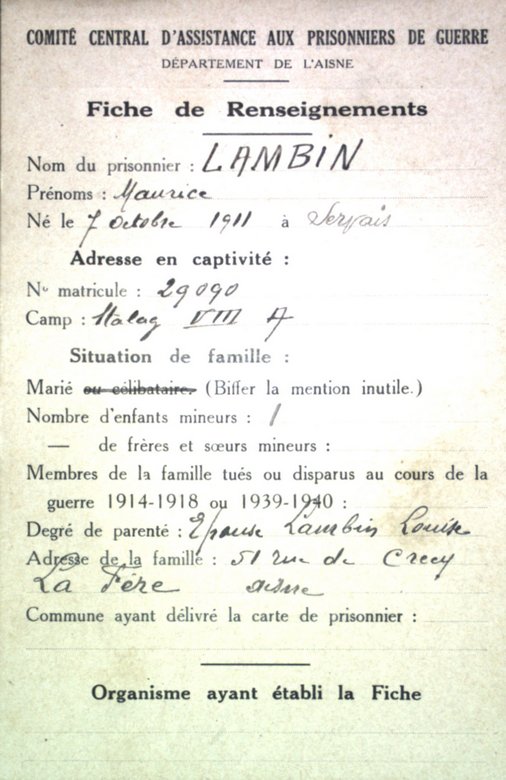 COMITÉ CENTRAL D'ASSISTANCE AUX PRISONNIERS DE GUERRE
DÉPARTEMENT DE L'AISNE
Fiche de Renseignements
Nom du prisonnier : LAMBIN
Prénoms : Maurice
Né le 7 octobre 1911 à Servais
Adresse en captivité :
No matricule : 29090
Camp : Stalag VIII A
Situation de famille :
Marié ou célibataire. (Biffer la mention inutile.)
Nombre d'enfants mineurs : 1
— de frères et sœurs mineurs :
Membres de la famille tués ou disparus au cours de la
guerre 1914-1918 ou 1939-1940 :
Degré de parenté : Epouse Lambin Louise
Adresse de la famille : 51 rue de Crecy
La Fère aisne
Commune ayant délivré la carte de prisonnier :
Organisme ayant établi la Fiche